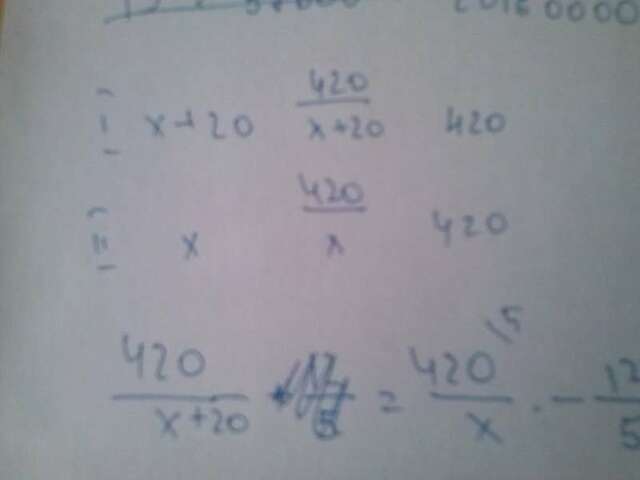 20160000
I x+20 420/(x+20) 420
II x 420/x 420
420/(x+20) = 420/x · - 12/5